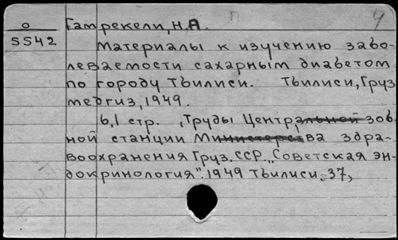 О Гамрекели, Н.А.
5542
Материалы к изучению забо-
леваемости сахарным диабетом
по городу Тбилиси. Тбилиси, Груз
медгиз, 1949.
6,1 стр. „Труды Центральной зов-
ной станции Министерства здра-
воохранения Груз. ССР. „Советская эн-
докринология". 1949 Тбилиси. 37,